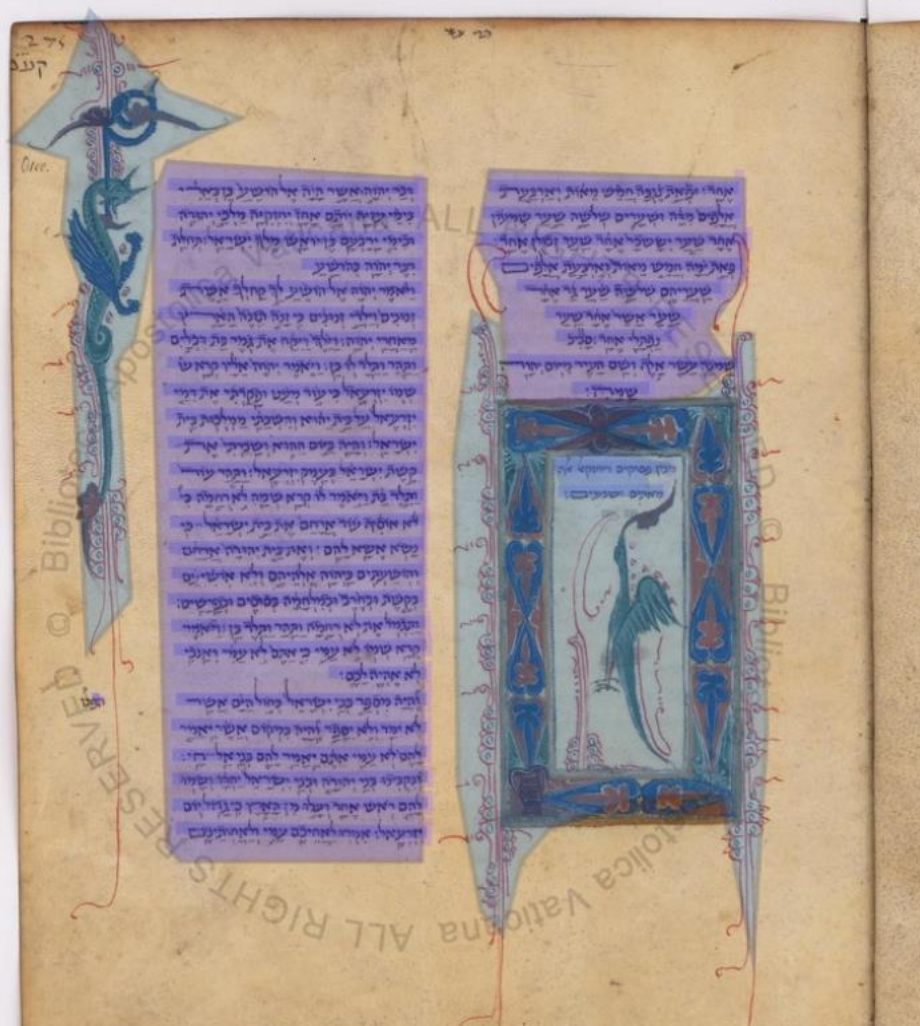 275
קעג
One.
אחד: ופאת נגבה חמש מאות וארבעת
אלפים מדה ושערים שלשה שער שמעון
אחד שער יששכר אחד שער זבולן אחד
פאת ימה חמש מאות וארבעת אלפים
שעריהם שלשה שער גד אחד
שער אשר אחד שער
נפתלי אחד: סביב
שמנה עשר אלף ושם העיר מיום יהוה
שמה:
מנין פסוקים
מאתים ושבעים
דבר יהוה אשר היה אל הושע בן בארי
בימי עזיה יותם אחז יחזקיה מלכי יהודה
ובימי ירבעם בן יואש מלך ישראל: תחלת
דבר יהוה בהושע
ויאמר יהוה אל הושע לך קח לך אשת
זנונים וילדי זנונים כי זנה תזנה הארץ
מאחרי יהוה: וילך ויקח את גמר בת דבלים
ותהר ותלד לו בן: ויאמר יהוה אליו קרא
שמו יזרעאל כי עוד מעט ופקדתי את דמי
יזרעאל על בית יהוא והשבתי ממלכות בית
ישראל: והיה ביום ההוא ושברתי את
קשת ישראל בעמק יזרעאל: ותהר עוד
ותלד בת ויאמר לו קרא שמה לא רחמה כי
לא אוסיף עוד ארחם את בית ישראל כי
נשא אשא להם: ואת בית יהודה ארחם
והושעתים ביהוה אלהיהם ולא אושיעם
בקשת ובחרב ובמלחמה בסוסים ובפרשים:
ותגמל את לא רחמה ותהר ותלד בן: ויאמר
קרא שמו לא עמי כי אתם לא עמי ואנכי
לא אהיה לכם:
והיה מספר בני ישראל כחול הים אשר
לא ימד ולא יספר והיה במקום אשר יאמר
להם לא עמי אתם יאמר להם בני אל חי:
ונקבצו בני יהודה ובני ישראל יחדו ושמו
להם ראש אחד ועלו מן הארץ כי גדול יום
יזרעאל: אמרו לאחיכם עמי ולאחותיכם
© Biblioteca Apostolica Vaticana ALL RIGHTS RESERVED